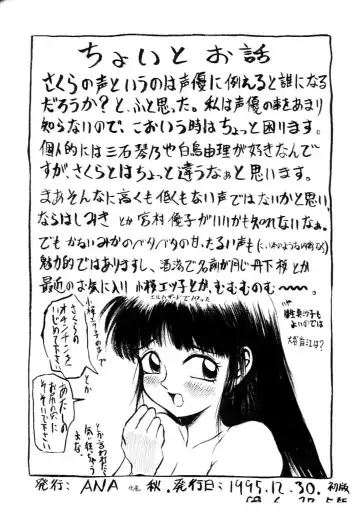 ちょいとお話
さくらの声というのは声優に例えると誰になる
だろうか？と、ふと思った。私は声優の事をあまり
知らないので、こおいう時はちょっと困ります。
個人的には三石琴乃や白鳥由理が好きなんで
すが、さくらとはちょっと違うなぁと思います。
まあそんなに高くも低くもない声ではないかと思い、
ならはしみき とか 宮村優子がいいかも知れないなぁ。
でも かないみかのベタベタの甘、たるい声も
魅力的ではありますし、洒落で名前が同じ丹下桜とか
最近のお気に入り 小桜エツ子とか、むむむのむ〜〜。
エルハザードでハマった
小桜エツ子の声で
さくらの
オチンチンを
いじめて下さい
とか
あたしの
お尻の穴に
そそいで下さい
とか言われたら
気が狂っちゃう
よな。
発行：ANA 代表 秋. 発行日：1995.12.30. 初版